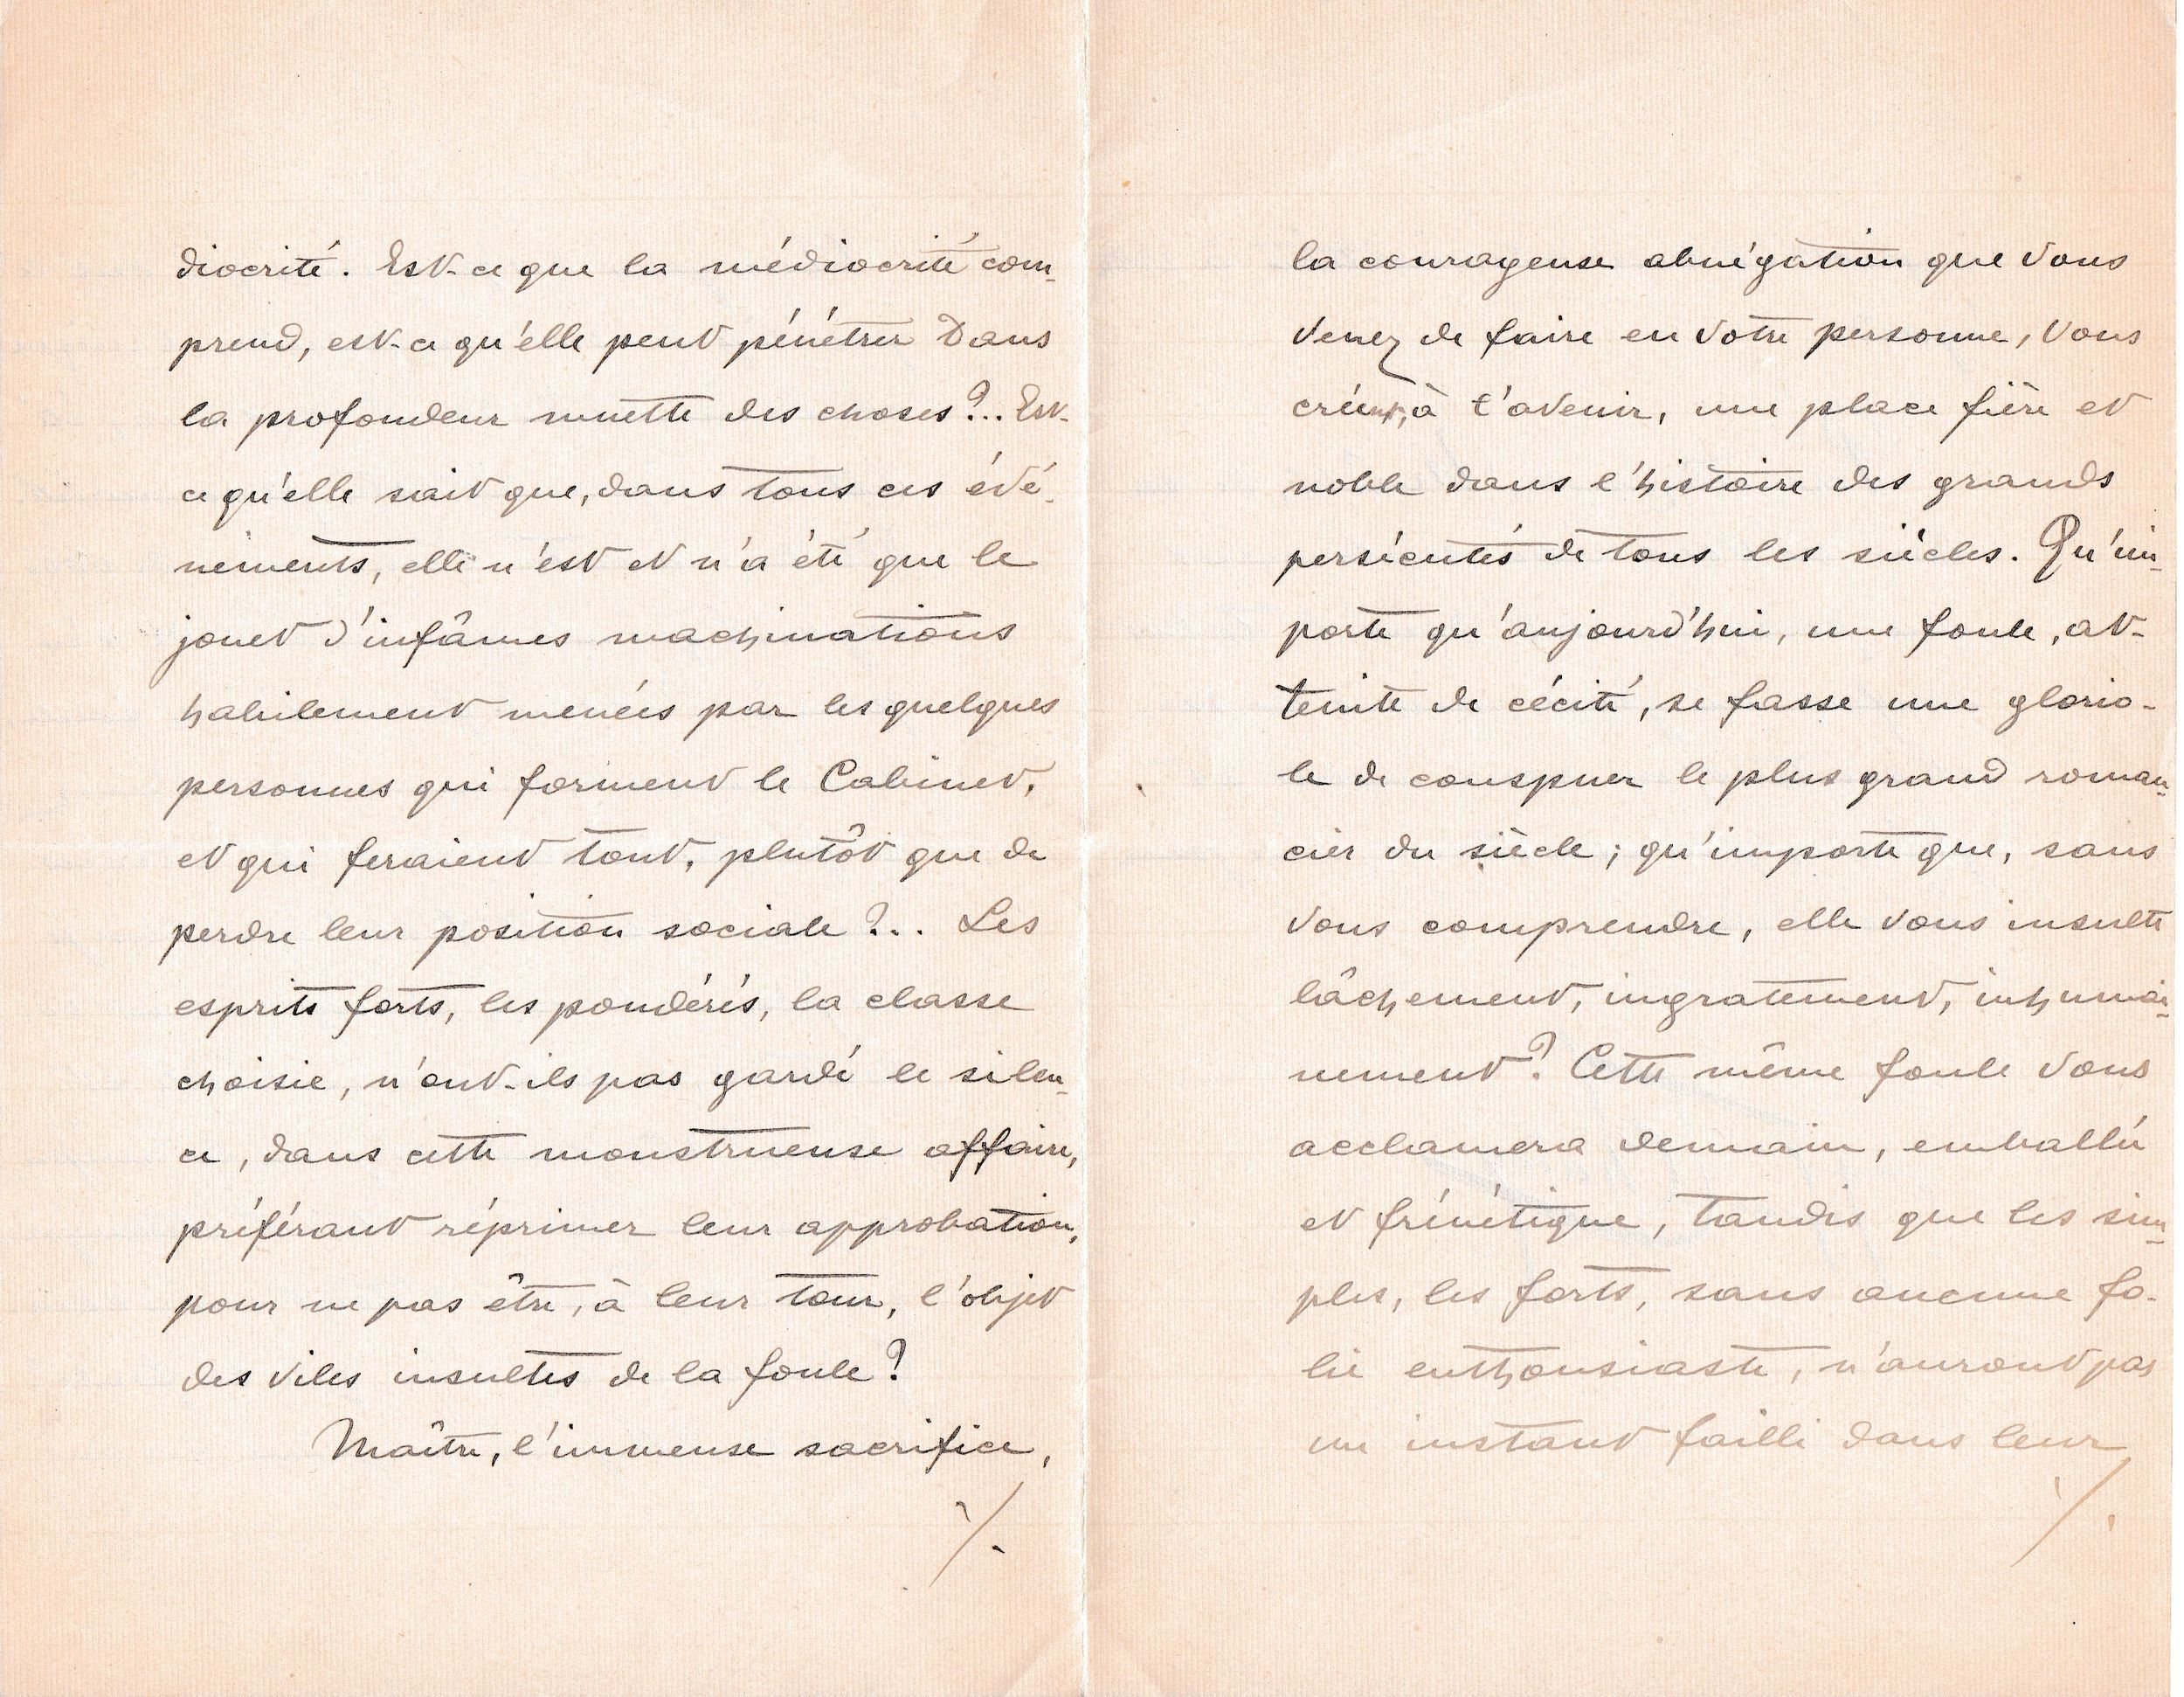 diocrité. Est-ce que la médiocrité com-
prend, est-ce qu'elle peut pénétrer dans
la profondeur muette des choses?.. Est-
ce qu'elle sait que, dans tous ces évé-
nements, elle n'est et n'a été que le
jouet d'infâmes machinations
habilement menées par les quelques
personnes qui forment le Cabinet,
et qui feraient tout, plutôt que de
perdre leur position sociale?... Les
esprits forts, les pondérés, la classe
choisie, n'ont-ils pas gardé le silen-
ce, dans cette monstrueuse affaire,
préférant réprimer leur approbation,
pour ne pas être, à leur tour, l'objet
des viles insultes de la foule?
Maître, l'immense sacrifice,
./.
la courageuse abnégation que vous
venez de faire en votre personne, vous
créent, à l'avenir, une place fière et
noble dans l'histoire des grands
persécutés de tous les siècles. Qu'im-
porte qu'aujourd'hui, une foule, at-
teinte de cécité, se fasse une glorio-
le de conspuer le plus grand roman-
cier du siècle; qu'importe que, sans
vous comprendre, elle vous insulte
lâchement, ingratement, inhumai-
nement? Cette même foule vous
acclamera demain, emballée
et frénétique, tandis que les sim-
ples, les forts, sans aucune fo-
lie enthousiaste, n'auront pas
un instant failli dans leur
./.